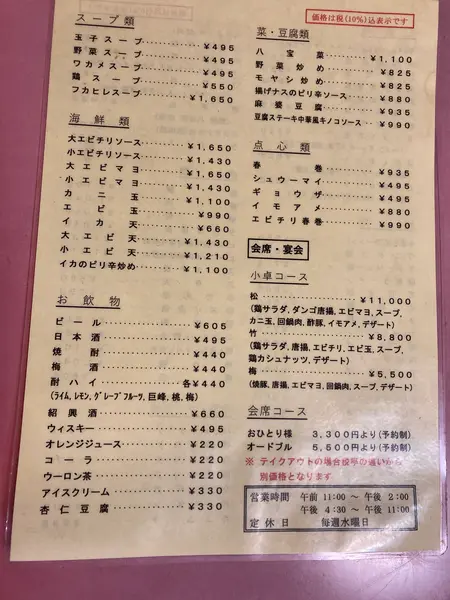 価格は税(10%)込表示です
スープ類
玉子スープ ¥495
野菜スープ ¥495
ワカメスープ ¥495
鶏スープ ¥550
フカヒレスープ ¥1,650
海鮮類
大エビチリソース ¥1,650
小エビチリソース ¥1,430
大エビマヨ ¥1,650
小エビマヨ ¥1,430
カニ玉 ¥1,100
エビ玉 ¥990
イカ天 ¥660
大エビ天 ¥1,430
小エビ天 ¥1,210
イカのピリ辛炒め ¥1,100
お飲物
ビール ¥605
日本酒 ¥495
焼酎 ¥440
梅酒 ¥440
酎ハイ 各¥440
(ライム,レモン,グレープフルーツ,巨峰,桃,梅)
紹興酒 ¥660
ウィスキー ¥495
オレンジジュース ¥220
コーラ ¥220
ウーロン茶 ¥220
アイスクリーム ¥330
杏仁豆腐 ¥330
菜・豆腐類
八宝菜 ¥1,100
野菜炒め ¥825
モヤシ炒め ¥825
揚げナスのピリ辛ソース ¥880
麻婆豆腐 ¥935
豆腐ステーキ中華風キノコソース ¥990
点心類
春巻 ¥935
シュウーマイ ¥495
ギョウザ ¥495
イモアメ ¥880
エビチリ春巻 ¥990
会席・宴会
小卓コース
松 ¥11,000
(鶏サラダ,ダンゴ唐揚,エビマヨ,スープ,
カニ玉,回鍋肉,酢豚,イモアメ,デザート)
竹 ¥8,800
(鶏サラダ,唐揚,エビチリ,エビ玉,スープ,
鶏カシュナッツ,デザート)
梅 ¥5,500
(焼豚,唐揚,エビマヨ,回鍋肉,スープ,デザート)
会席コース
おひとり様 3,300円より(予約制)
オードブル 5,500円より(予約制)
※ テイクアウトの場合税率の違いから
別価格となります
営業時間 午前 11:00 ~ 午後 2:00
午後 4:30 ~ 午後 11:00
定休日 毎週水曜日